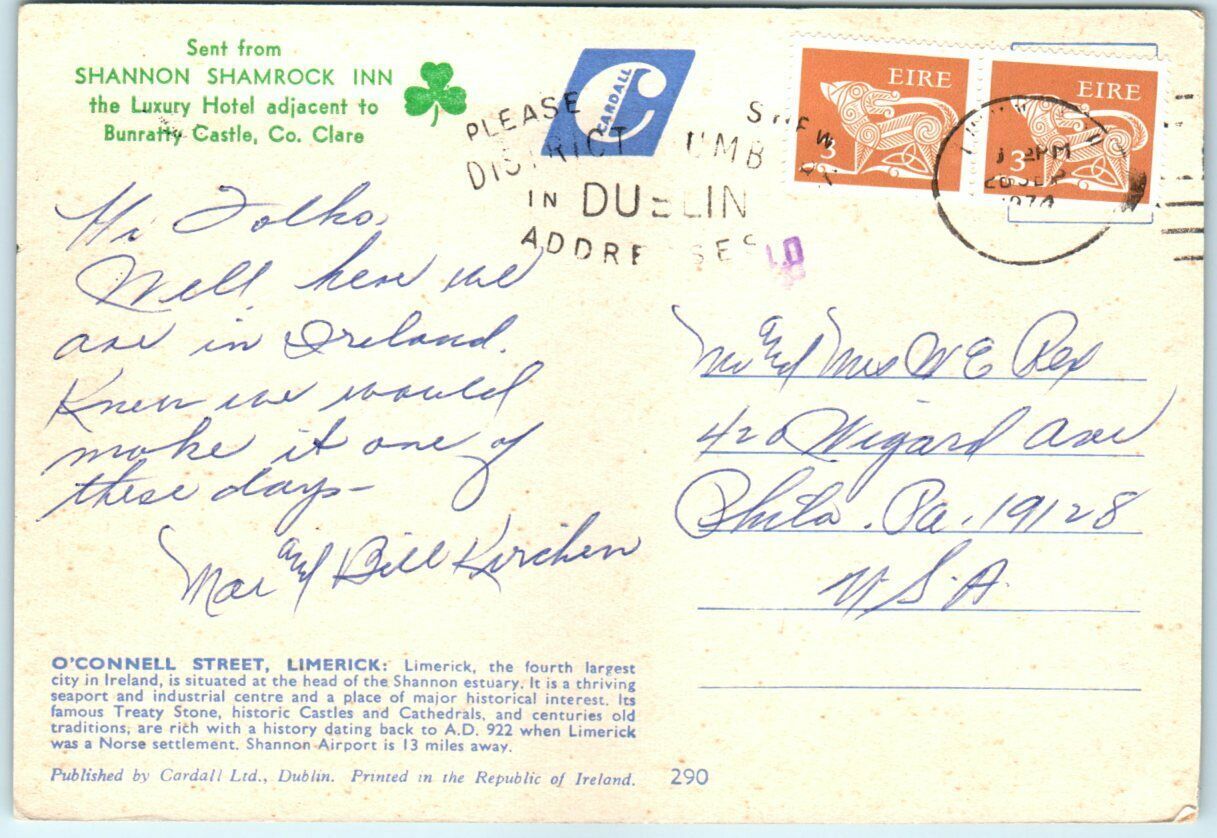 Sent from
SHANNON SHAMROCK INN
the Luxury Hotel adjacent to
Bunratty Castle, Co. Clare
CARDALL
EIRE
3
EIRE
3
PLEASE
DISTRICT
IN DUBLIN
ADDRESSES
PM
Hi Folks,
Well, here we
are in Ireland.
Knew we would
make it one of
these days—
Mar and Bill Kirchen
Mr and Mrs W E Rex
420 Wigard Ave
Phila. Pa. 19128
U.S.A.
O'CONNELL STREET, LIMERICK: Limerick, the fourth largest
city in Ireland, is situated at the head of the Shannon estuary. It is a thriving
seaport and industrial centre and a place of major historical interest. Its
famous Treaty Stone, historic Castles and Cathedrals, and centuries old
traditions, are rich with a history dating back to A.D. 922 when Limerick
was a Norse settlement. Shannon Airport is 13 miles away.
Published by Cardall Ltd., Dublin. Printed in the Republic of Ireland. 290